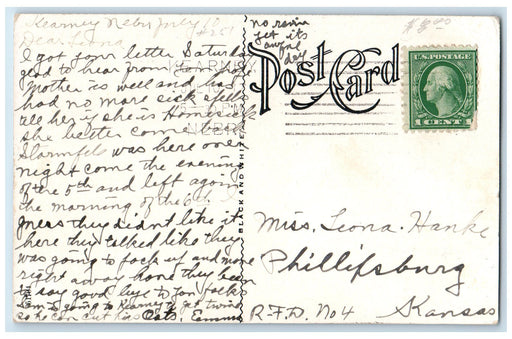 Kearney Nebr July 10
Dear Leona
I got your letter Saturday
glad to hear from you folks
Mother is well and has
had no more sick spells
tell her if she is Homesick
she better come back
was here over
night come the evening
of the 5th and left again
the morning of the 6th
guess they didn't like it
here they talked like they
was going to pack up and move
right away have they been
to say good bye to you folks
Sam is going to Kearney to get twine
so he can cut his Oats. Emma
no rain
yet its
awful
dry
Post Card
BLACK AND WHITE
U.S. POSTAGE
1 CENT 1
Miss. Leona. Hanke
Phillipsburg
R-F.D. No 4 Kansas